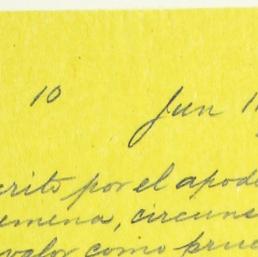 10 Jun 1
crito por el apode
emena, circuns
valor como prue